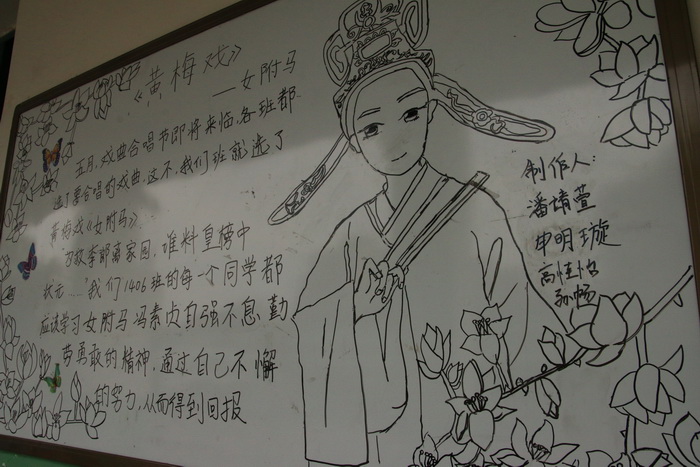 《黄梅戏》
——女附马
五月,戏曲合唱节即将来临,各班都
选了要合唱的戏曲,这不,我们班就选了
黄梅戏《女附马》.
为救李郎离家园,谁料皇榜中
状元....."我们1406班的每一个同学都
应该学习女附马冯素贞自强不息,勤
劳勇敢的精神,通过自己不懈
的努力,从而得到回报
制作人:
潘靖萱
申明璇
高佳怡
孙畅